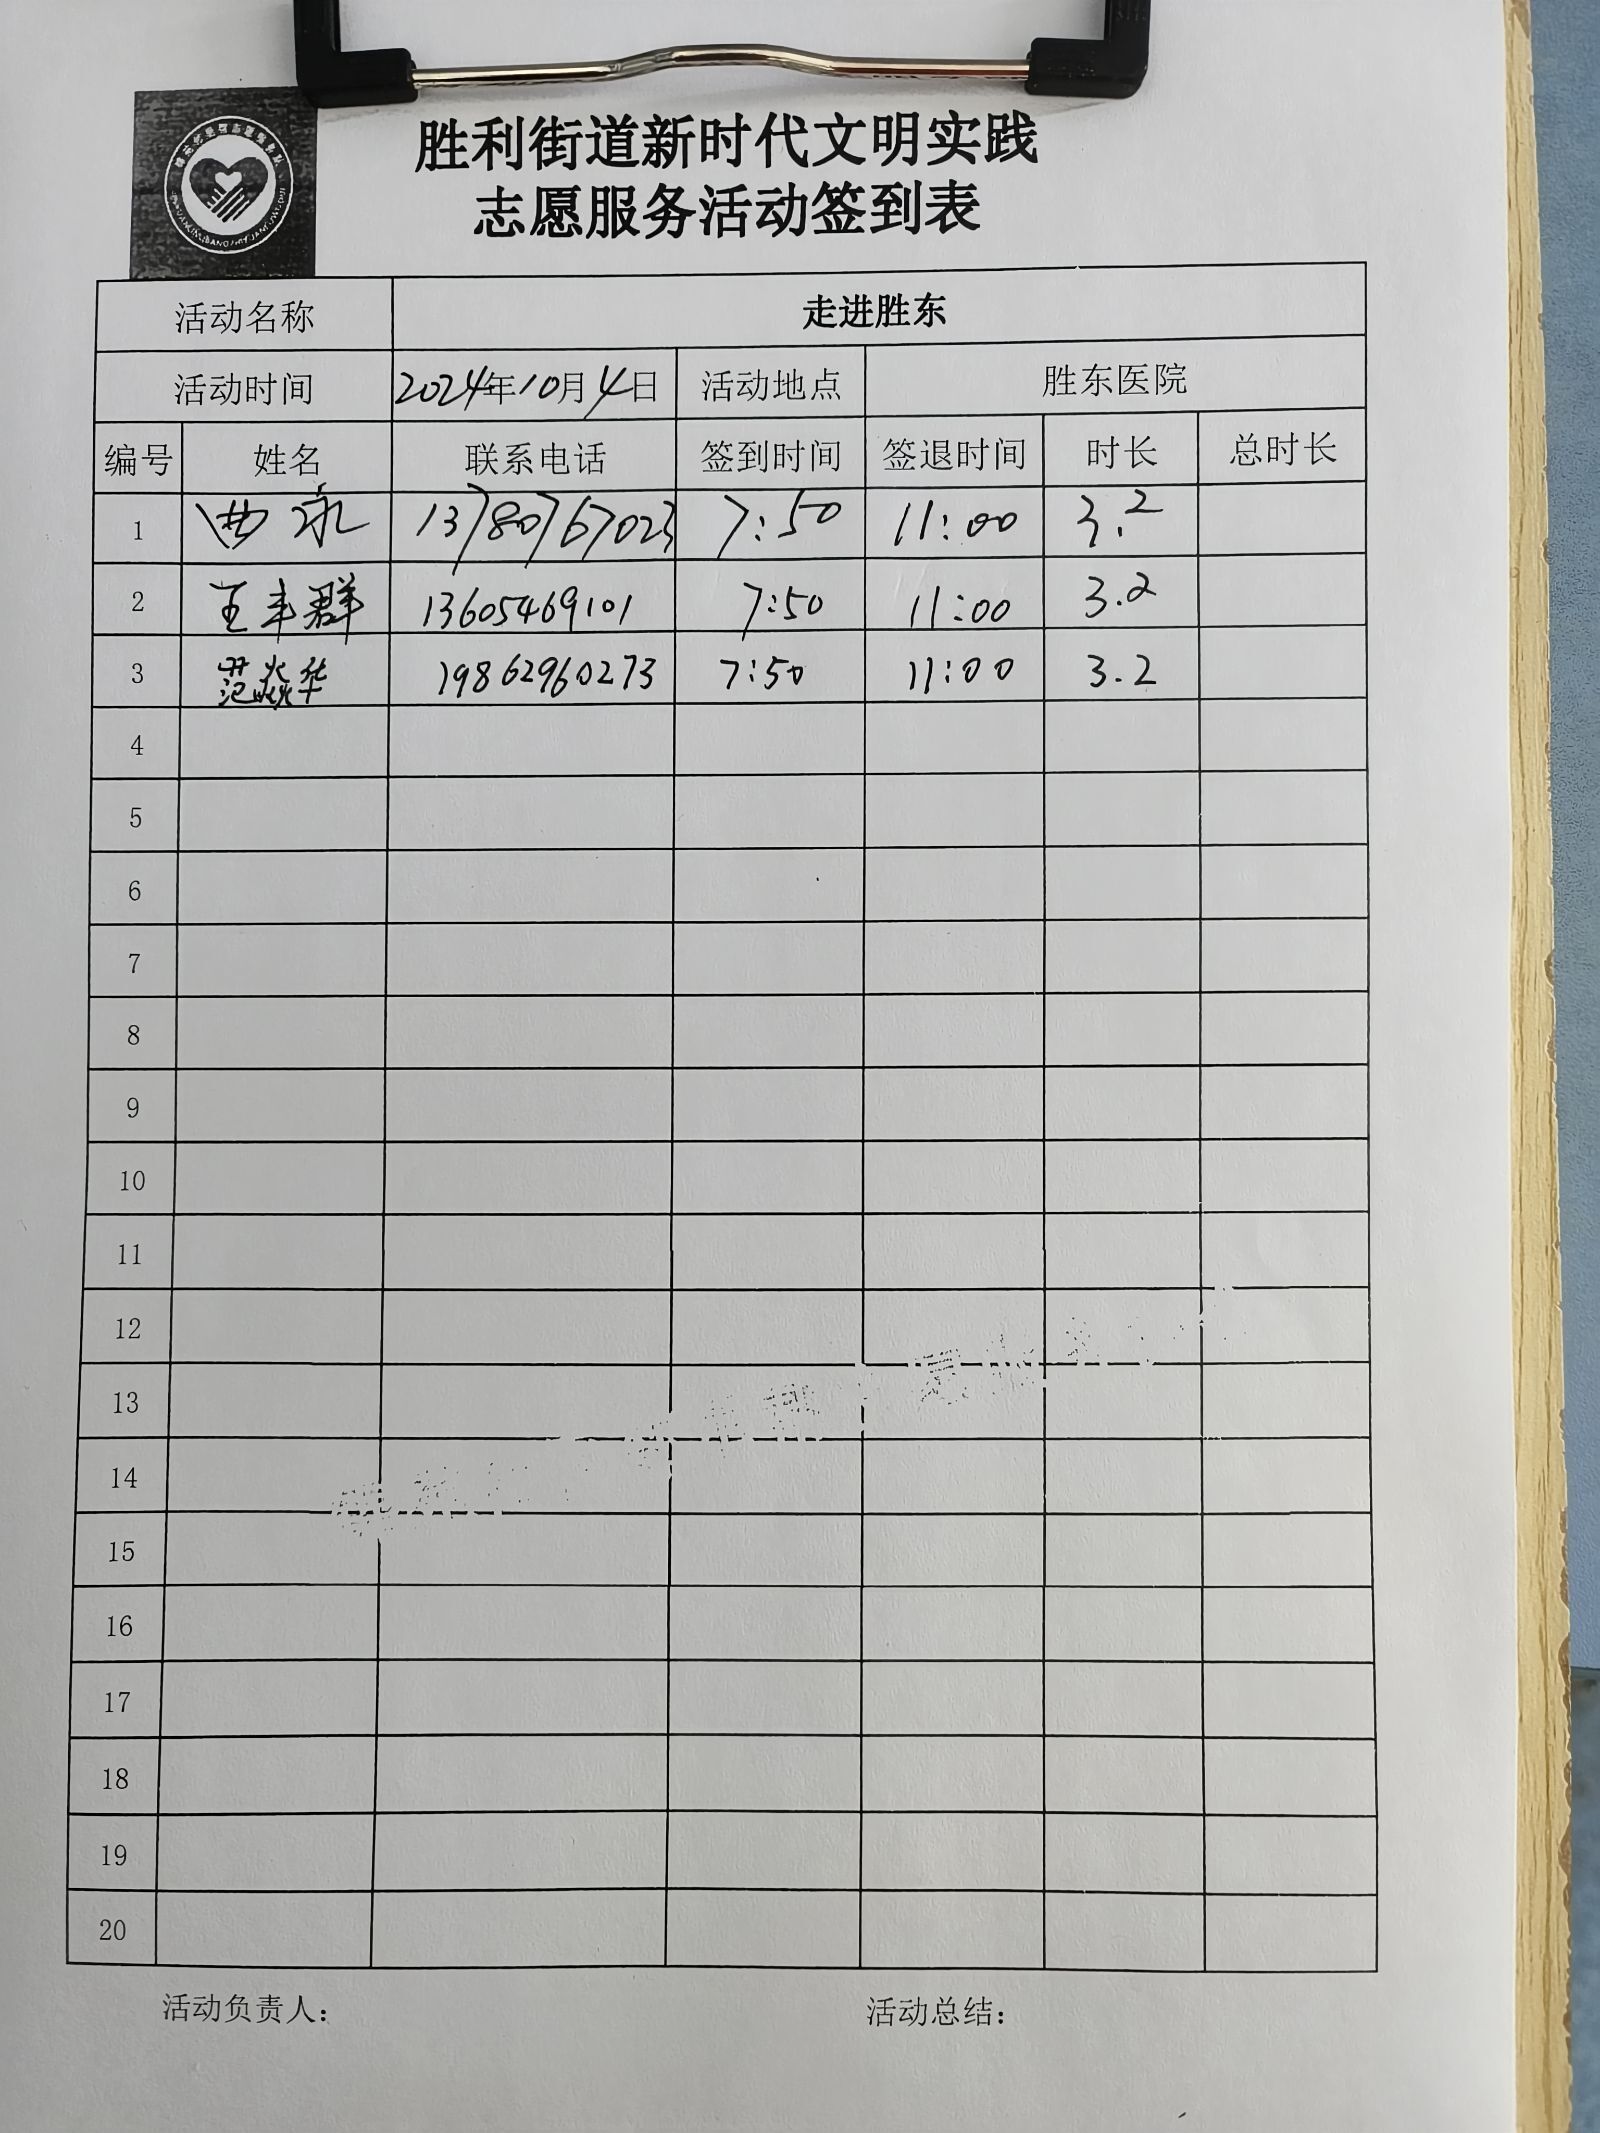 胜利街道新时代文明实践
志愿服务活动签到表
活动名称 走进胜东
活动时间 2024年10月4日 活动地点 胜东医院
编号 姓名 联系电话 签到时间 签退时间 时长 总时长
1 曲永 13780767023 7:50 11:00 3.2
2 王丰群 13605469101 7:50 11:00 3.2
3 范焱华 19862960273 7:50 11:00 3.2
4
5
6
7
8
9
10
11
12
13
14
15
16
17
18
19
20
活动负责人: 活动总结: